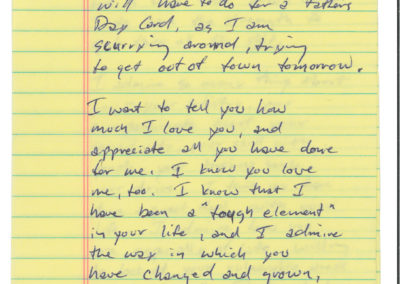 will have to do for a Fathers
Day Card, as I am
scurrying around, trying
to get out of town tomorrow.
I want to tell you how
much I love you, and
appreciate all you have done
for me. I know you love
me, too. I know that I
have been a "tough element"
in your life, and I admire
the way in which you
have changed and grown,